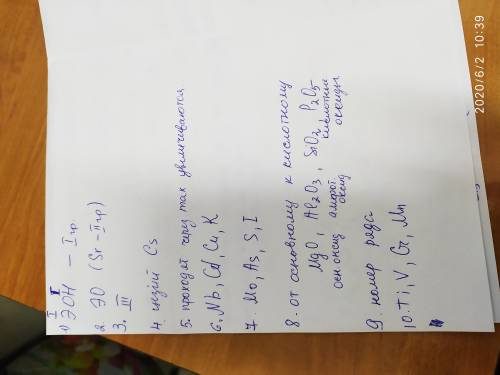 I I
1) ЭОН - I гр.
2. ЭО (Sr - II гр)
3. III
4. цезий Cs
5. проходят через max увеличиваются
6. Nb, Cd, Cu, K
7. Mo, As, S, I
8. от основному к кислотному
MgO, Al2O3, SiO2, P2O5
осн. оксид амфот. оксид кислотные оксиды
9. номер ряда
10. Ti, V, Cr, Mn
2020/6/2 10:39